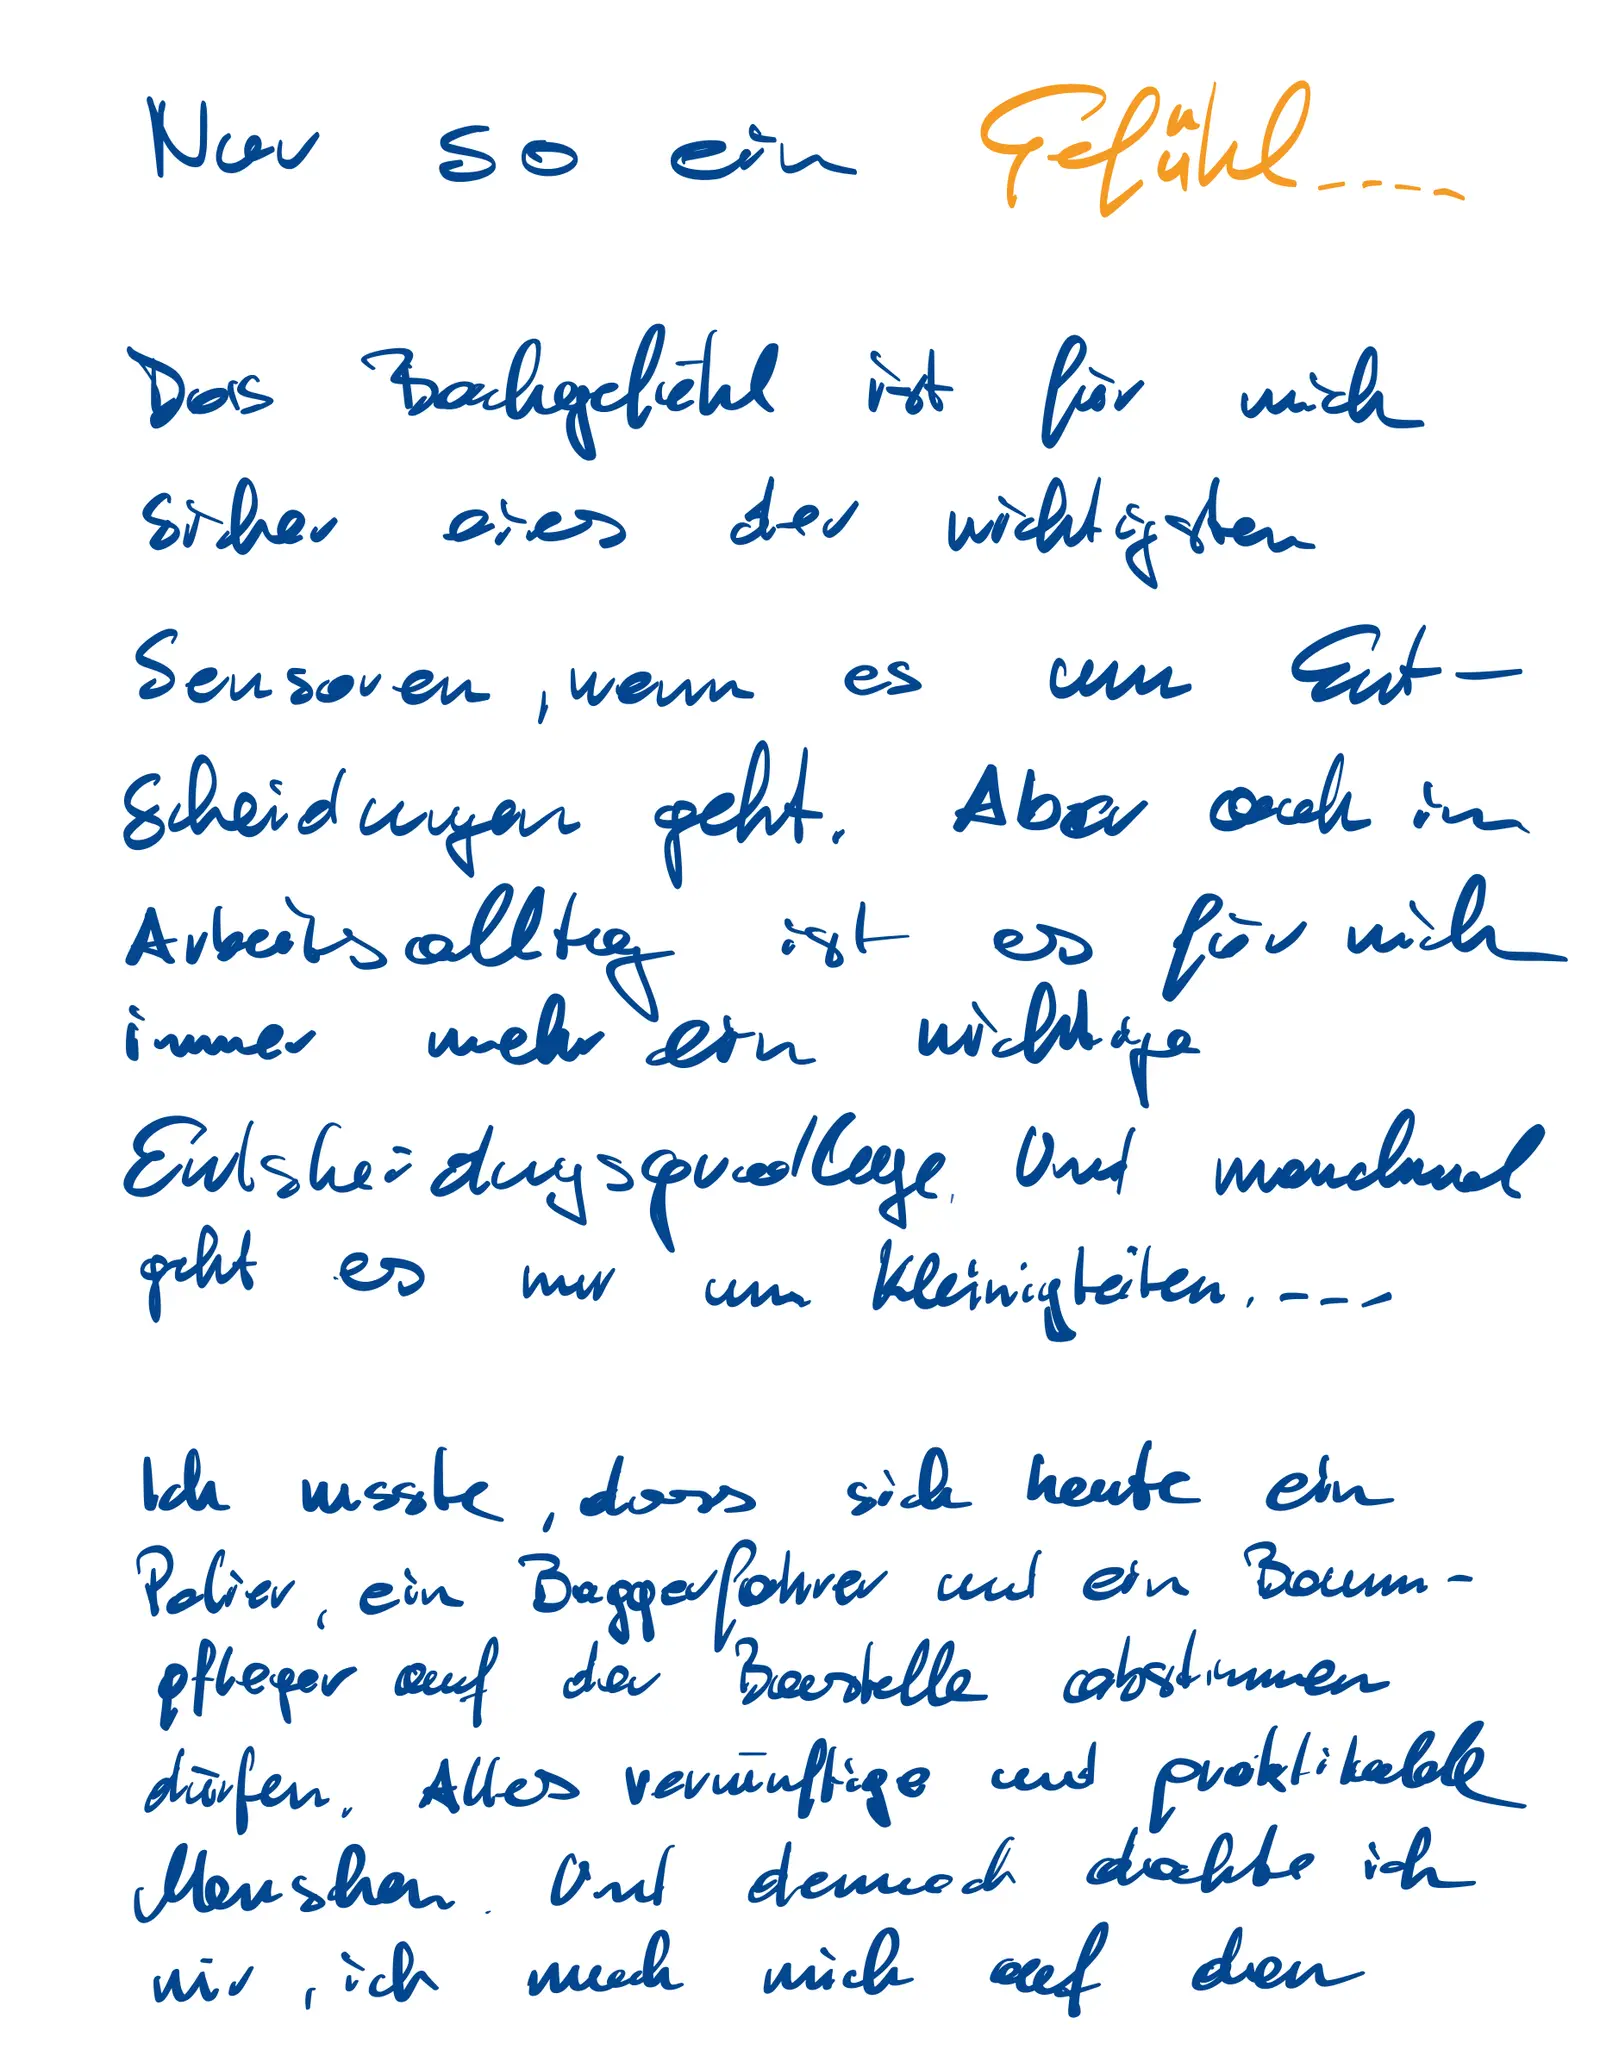 Nur so ein Gefühl.....
Das Bachgefühl ist für mich
sicher eines der wichtigsten
Sensoren, wenn es um Ent-
scheidungen geht. Aber auch im
Arbeitsalltag ist es für mich
immer mehr ein wichtige
Entsheidungsgrundlage. Und manchmal
geht es nur um Kleinigkeiten. ---
Ich wusste, dass sich heute ein
Polier, ein Baggerfahrer und ein Baum-
pfleger auf der Baustelle abstimmen
dürfen. Alles vernünftige und praktikable
Menshen. Und dennoch dachte ich
mir, ich mach mich auf den